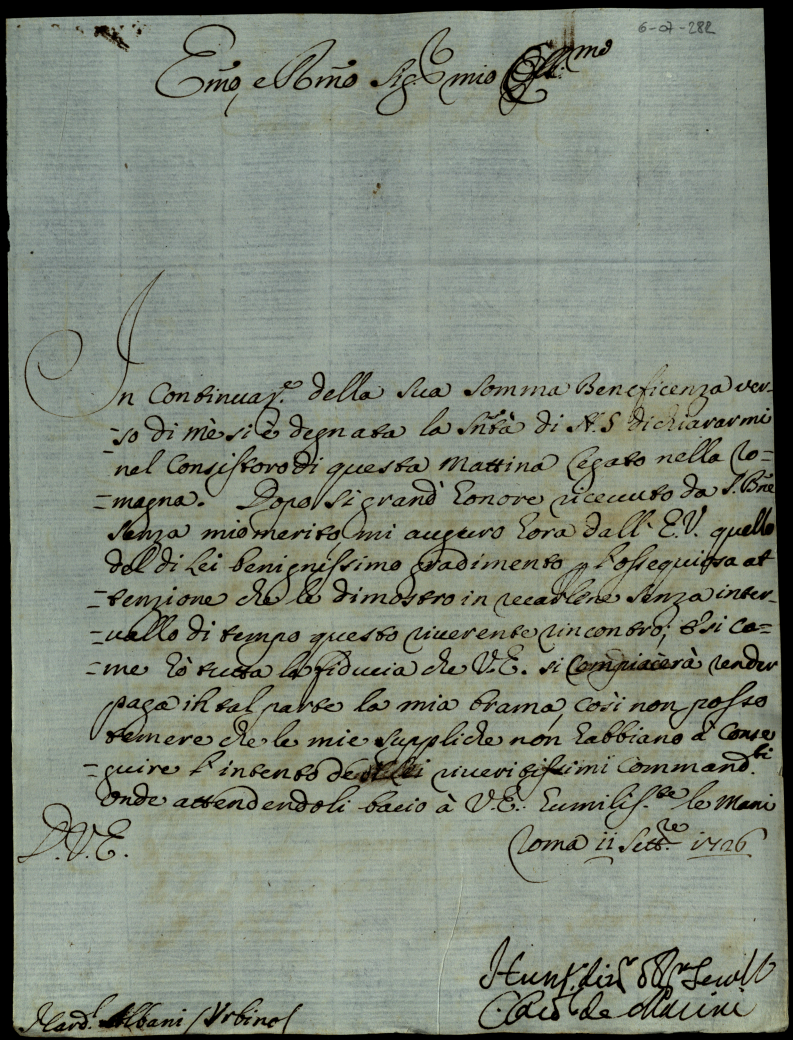 6-07-282
Em̃o, e Rm̃o Sig.r mio Oss.mo
In Continuaz.e della sua somma Beneficenza ver-
-so di mè si è degnata la Sñtà di N.S. dichiararmi
nel Consistoro di questa Mattina Legato nella Ro=
=magna. Dopo si grand' honore riceuuto da S. Bñe
senza mio merito, mi auguro hora dall' E.V. quello
del di Lei benignissimo gradimento p l'ossequiosa at
=tenzione che le dimostro in recarlene senza inter-
=uallo di tempo questo riuerente rincontro; E si co=
=me hò tutta la fiducia che V.E. si compiacerà render
paga in tal parte la mia brama, così non posso
temere che le mie suppliche non habbiano à conse
=guire l'intento de riueritissimi Command.ti
onde attendendoli bacio à V.E. humilis.te le Mani
D.V.E.
Roma 11 Sett.re 1726
Hum.o di.r Ser.
Card. de Marini
S.Card.l Albani /Vrbino/